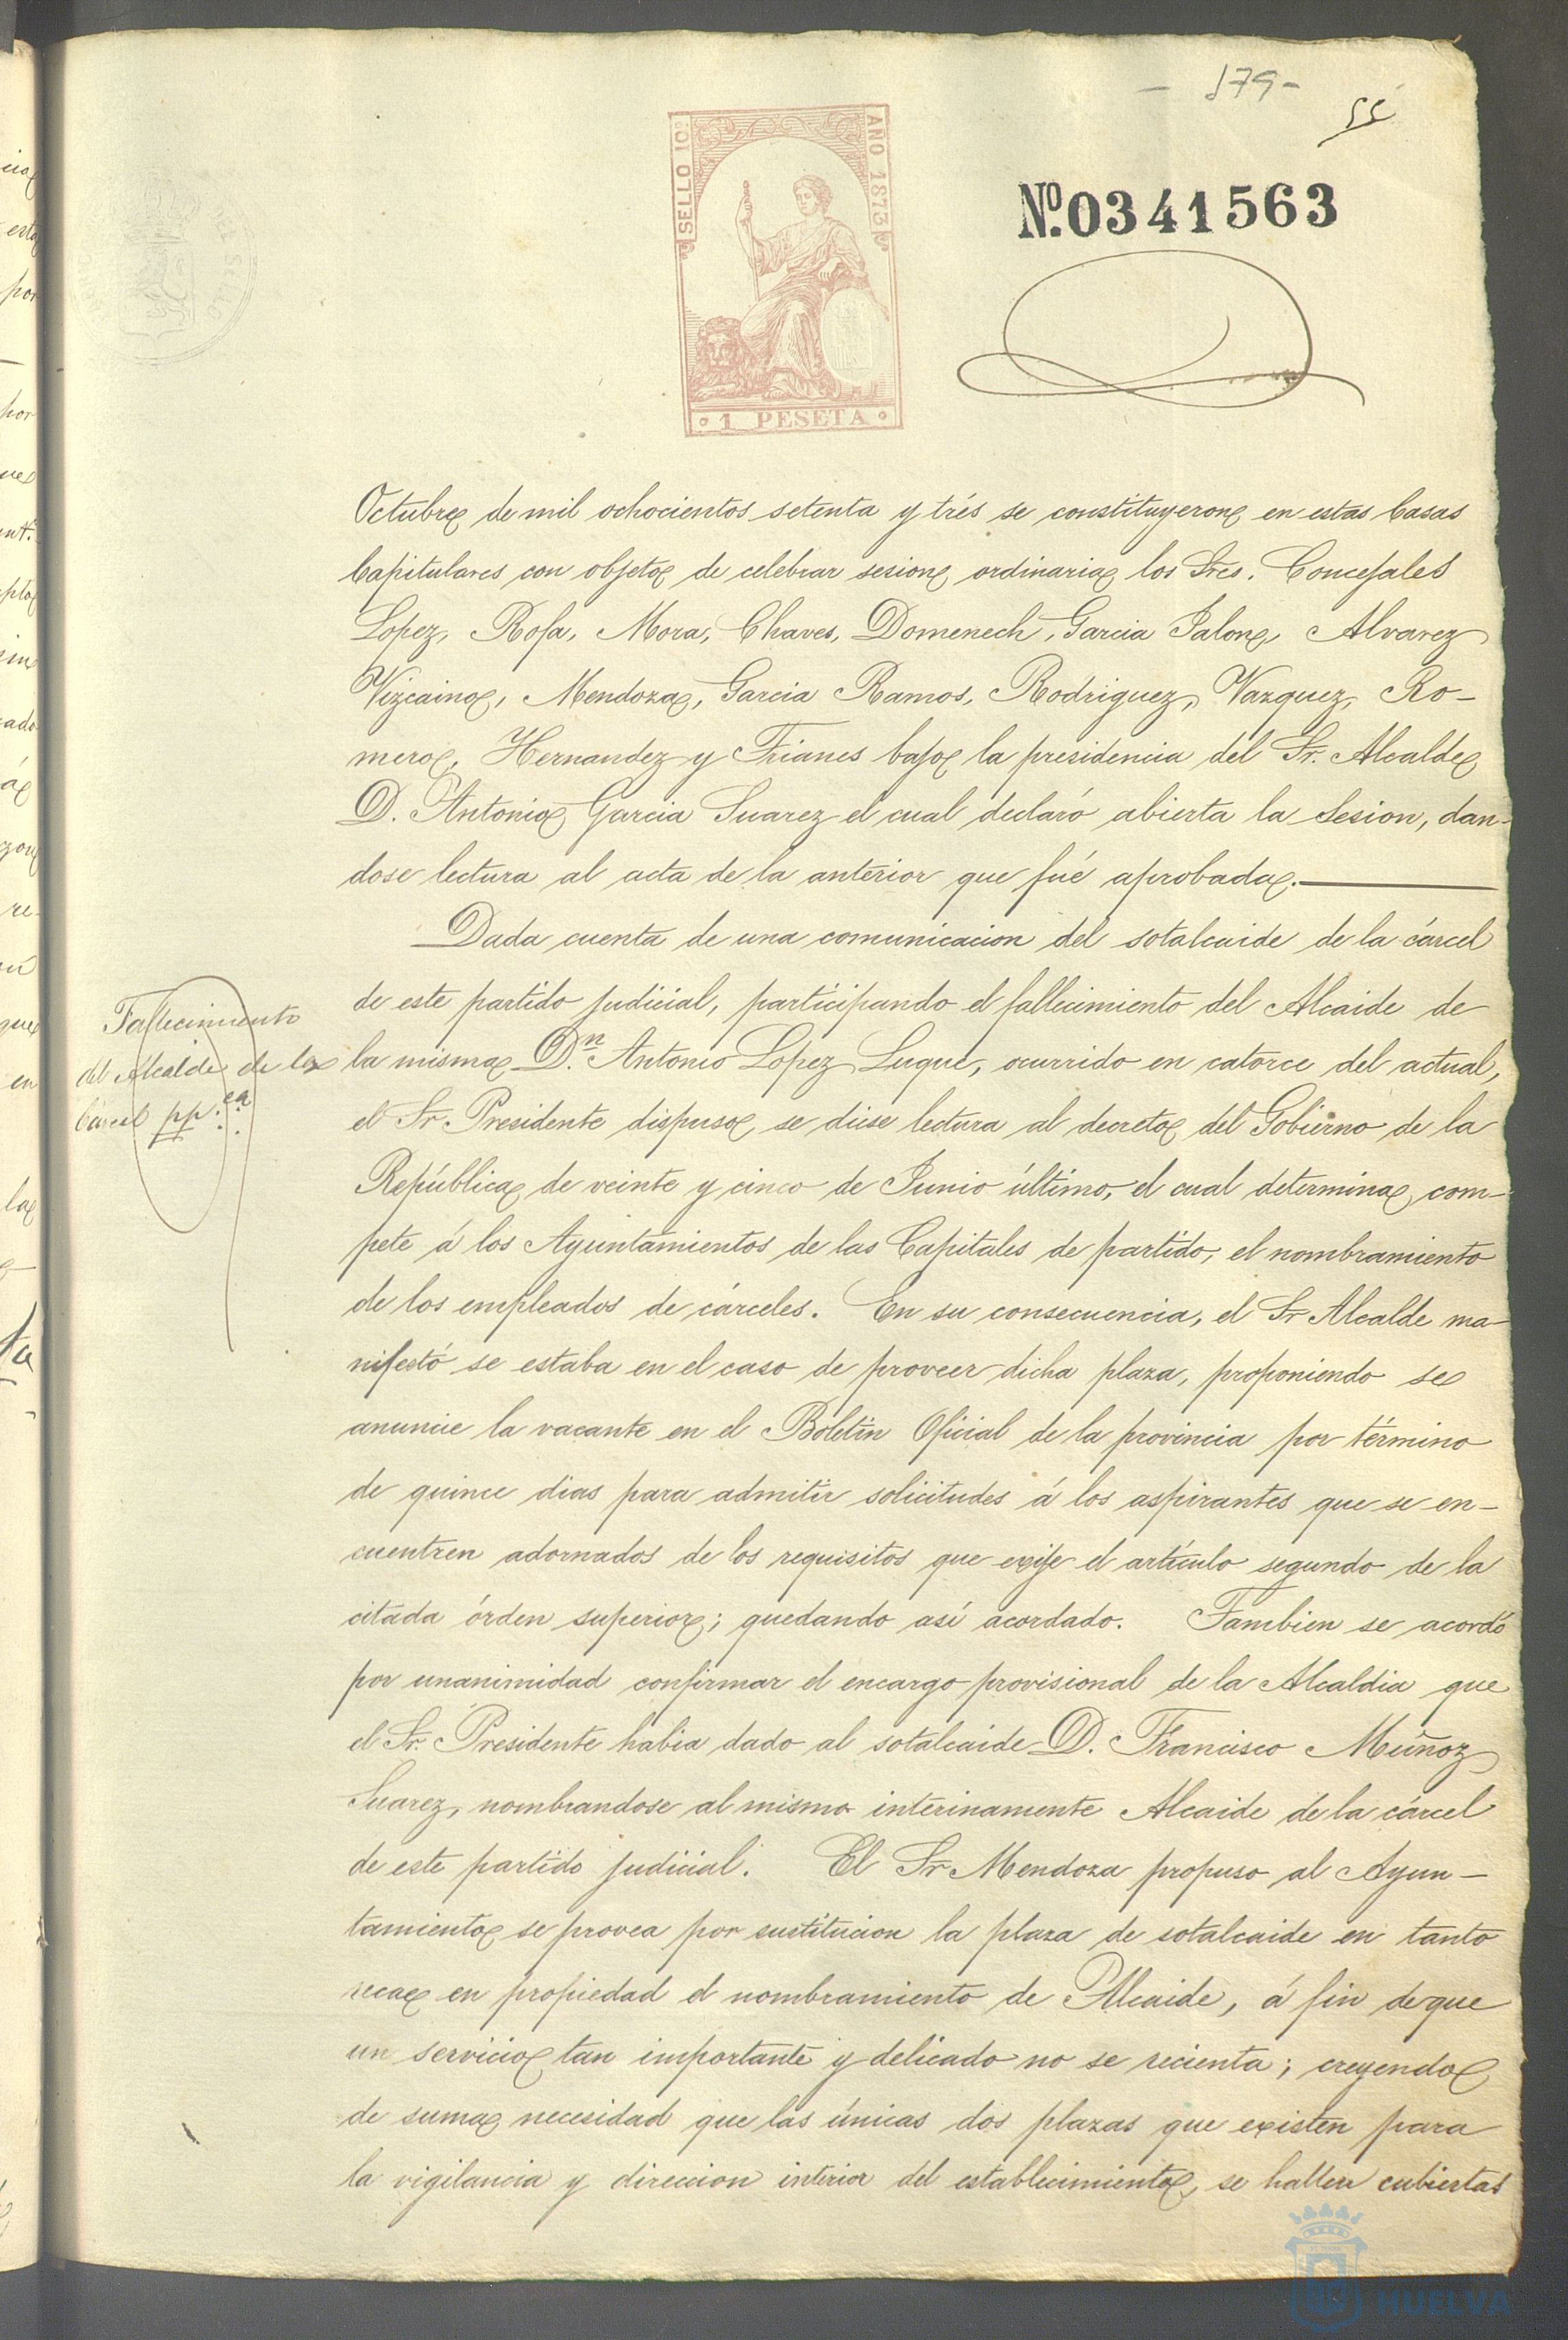 - 179 -
55
SELLO 10º
AÑO 1873
1 PESETA
Nº. 0341563
Octubre de mil ochocientos setenta y trés se constituyeron en estas Casas
Capitulares con objeto de celebrar sesion ordinaria los Sres. Concejales
Lopez, Rofa, Mora, Chaves, Domenech, Garcia Jalon, Alvarez
Vizcaino, Mendoza, Garcia Ramos, Rodriguez, Vazquez, Ro-
mero, Hernandez y Trianes bajo la presidencia del Sr. Alcalde
D. Antonio Garcia Suarez el cual declaró abierta la Sesion, dan-
dose lectura al acta de la anterior que fué aprobada.
Dada cuenta de una comunicacion del sotalcaide de la cárcel
de este partido judicial, participando el fallecimiento del Alcaide de
la misma Dn. Antonio Lopez Luque, ocurrido en catorce del actual,
el Sr. Presidente dispuso se diese lectura al decreto del Gobierno de la
República de veinte y cinco de Junio último, el cual determina com-
pete á los Ayuntamientos de las Capitales de partido, el nombramiento
de los empleados de cárceles. En su consecuencia, el Sr Alcalde ma-
nifestó se estaba en el caso de proveer dicha plaza, proponiendo se
anuncie la vacante en el Boletin Oficial de la provincia por término
de quince dias para admitir solicitudes á los aspirantes que se en-
cuentren adornados de los requisitos que exije el artículo segundo de la
citada órden superior; quedando así acordado. Tambien se acordó
por unanimidad confirmar el encargo provisional de la Alcaldia que
el Sr. Presidente habia dado al sotalcaide D. Francisco Muñoz
Suarez, nombrandose al mismo interinamente Alcaide de la cárcel
de este partido judicial. El Sr Mendoza propuso al Ayun-
tamiento se provea por sustitucion la plaza de sotalcaide en tanto
recae en propiedad el nombramiento de Alcaide, á fin de que
un servicio tan importante y delicado no se recienta; creyendo
de suma necesidad que las únicas dos plazas que existen para
la vigilancia y direccion interior del establecimiento, se hallen cubiertas
Fallecimiento
del Alcalde de la
Cárcel pp.ca
HUELVA